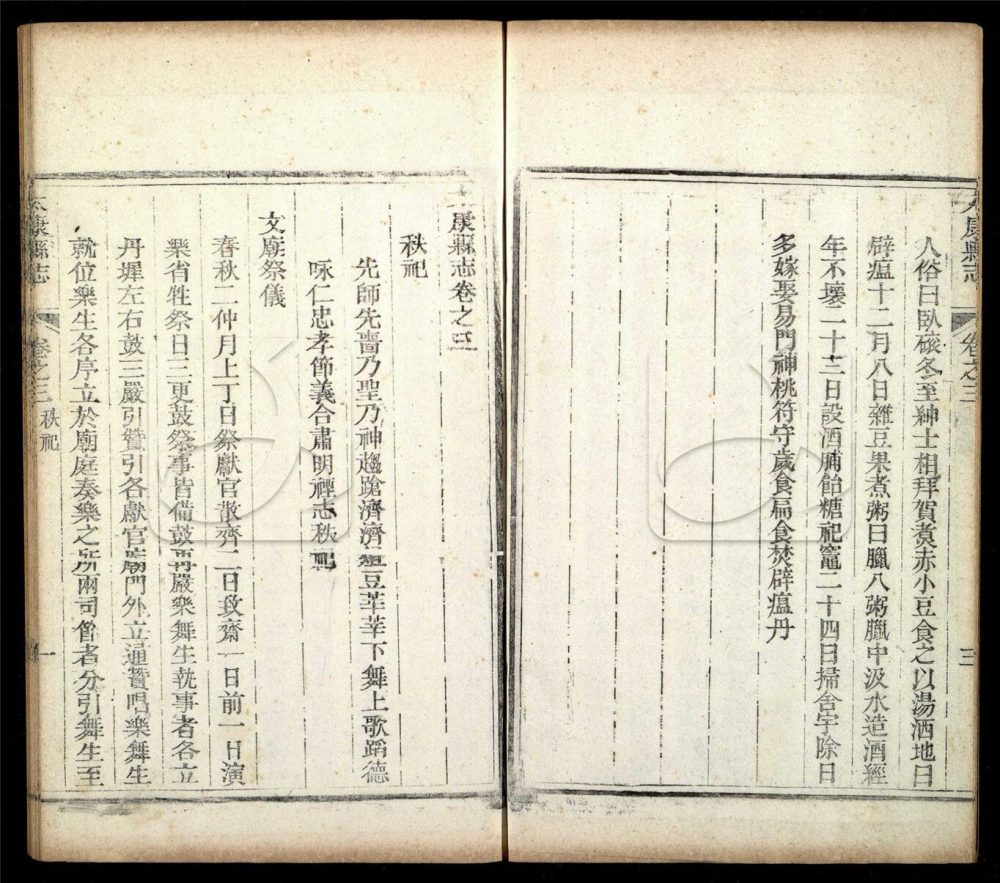 太康縣志
卷之三
三
人俗曰臥碌冬至紳士相拜賀煮赤小豆食之以湯洒地曰
辟瘟十二月八日雜豆果煮粥曰臘八粥臘中汲水造酒經
年不壞二十三日設酒脯飴糖祀竈二十四日掃舍宇除日
多嫁娶易門神桃符守歲食扁食焚辟瘟丹
太康縣志卷之三
秩祀
先師先嗇乃聖乃神趨蹌濟濟豆莘莘下舞上歌蹈德
咏仁忠孝節義合肅明禋志秩祀
文廟祭儀
春秋二仲月上丁日祭獻官散齊二日致齋一日前一日演
樂省牲祭日三更鼓祭事皆備鼓再嚴樂舞生執事者各立
丹墀左右鼓三嚴引贊引各獻官廟門外立通贊唱樂舞生
就位樂生各序立於廟庭奏樂之所兩司節者分引舞生至
太康縣志
卷之三
秩祀
一